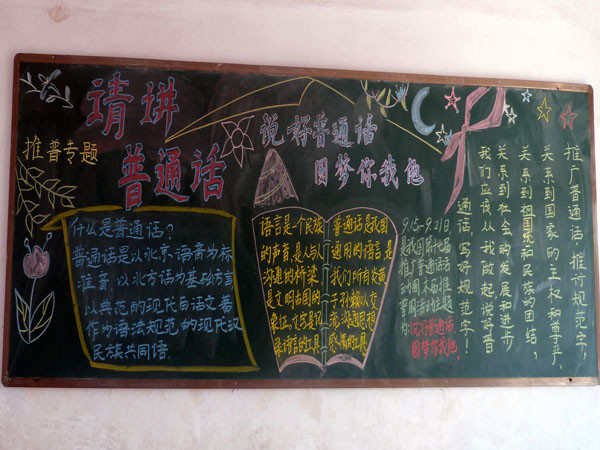 请讲
普通话
推普专题
说好普通话
圆梦你我他
什么是普通话?
普通话是以北京语音为标
准音,以北方话为基础方言
以典范的现代白话文著
作为语法规范的现代汉
民族共同语。
语言是一个民族
的声音,是人与人
沟通的桥梁
是文明古国的
象征。文字是记
录语言的工具
普通话是我国
通用的语言是
我们所有炎黄
子孙赖以交
流沟通思想
感情的工具
9.15-9.21日
是我国第七届
推广普通话
为:说好普通话
圆梦你我他.
推广普通话,推行规范字,
关系到国家的主权和尊严,
关系到祖国和民族的团结,
关系到社会的发展和进步
我们应该从我做起说好普
通话,写好规范字!